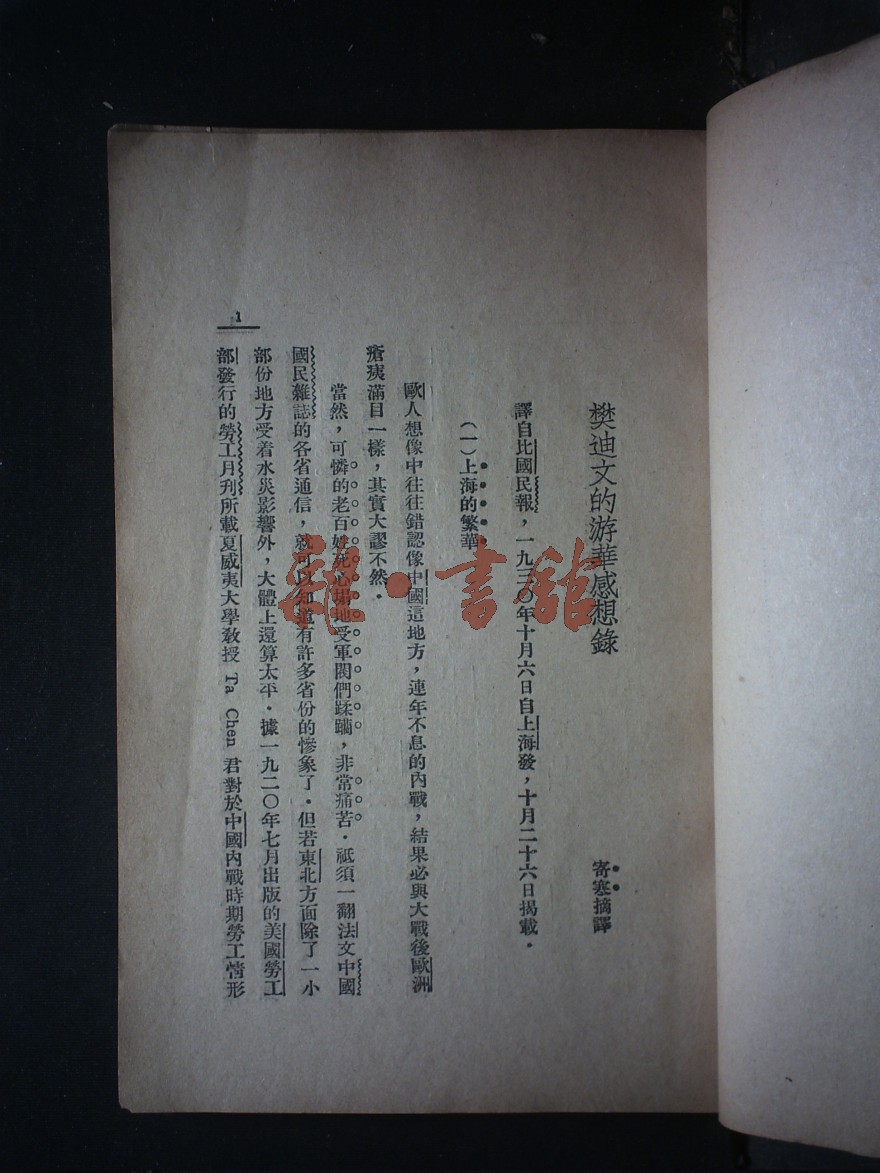 樊迪文的游華感想錄
寄寒摘譯
譯自比國民報，一九三〇年十月六日自上海發，十月二十六日揭載．
（一）上海的繁華
歐人想像中往往錯認像中國這地方，連年不息的內戰，結果必與大戰後歐洲
瘡痍滿目一樣，其實大謬不然．
當然，可憐的老百姓死心塌地受軍閥們蹂躪，非常痛苦．祗須一翻法文中國
國民雜誌的各省通信，就可以知道有許多省份的慘象了．但若東北方面除了一小
部份地方受着水災影響外，大體上還算太平．據一九二〇年七月出版的美國勞工
部發行的勞工月刊所載夏威夷大學教授 Ta Chen 君對於中國內戰時期勞工情形
1
龍·書館